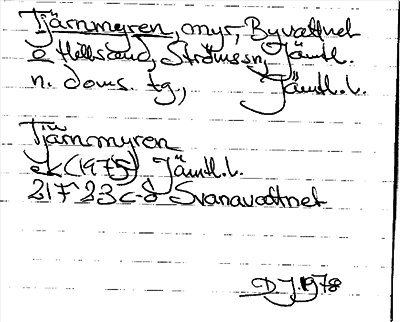 Tjärnmyren, myr, Byvattnet
o Hillsand, Ströms sn, Jämtl.
n. doms. tg, Jämtl. l.
Tjärnmyren
ek (1975) Jämtl. l.
21F 23 c-d Svanavattnet
DJ. 1978